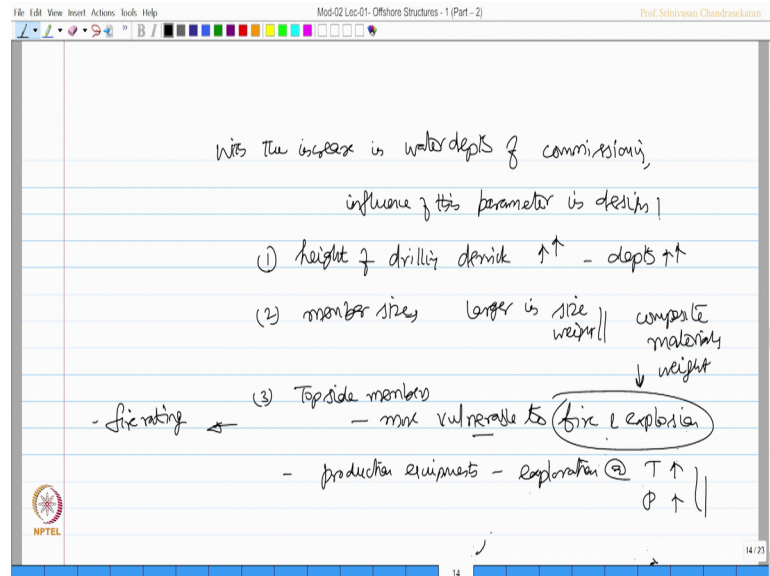 File Edit View Insert Actions Tools Help
Mod-02 Lec-01- Offshore Structures - 1 (Part – 2)
Prof. Srinivasan Chandrasekaran
B I
With the increase in water depth of commissioning,
influence of this parameter in design
① height of drilling derrick ↑↑ - depth ↑↑
(2) member sizes, larger in size
weight
composite
materials
↓ weight
(3) Topside members
- fire rating ← - more vulnerable to fire & explosion
- production equipments - exploration @ T ↑
P ↑
NPTEL
14/23
14